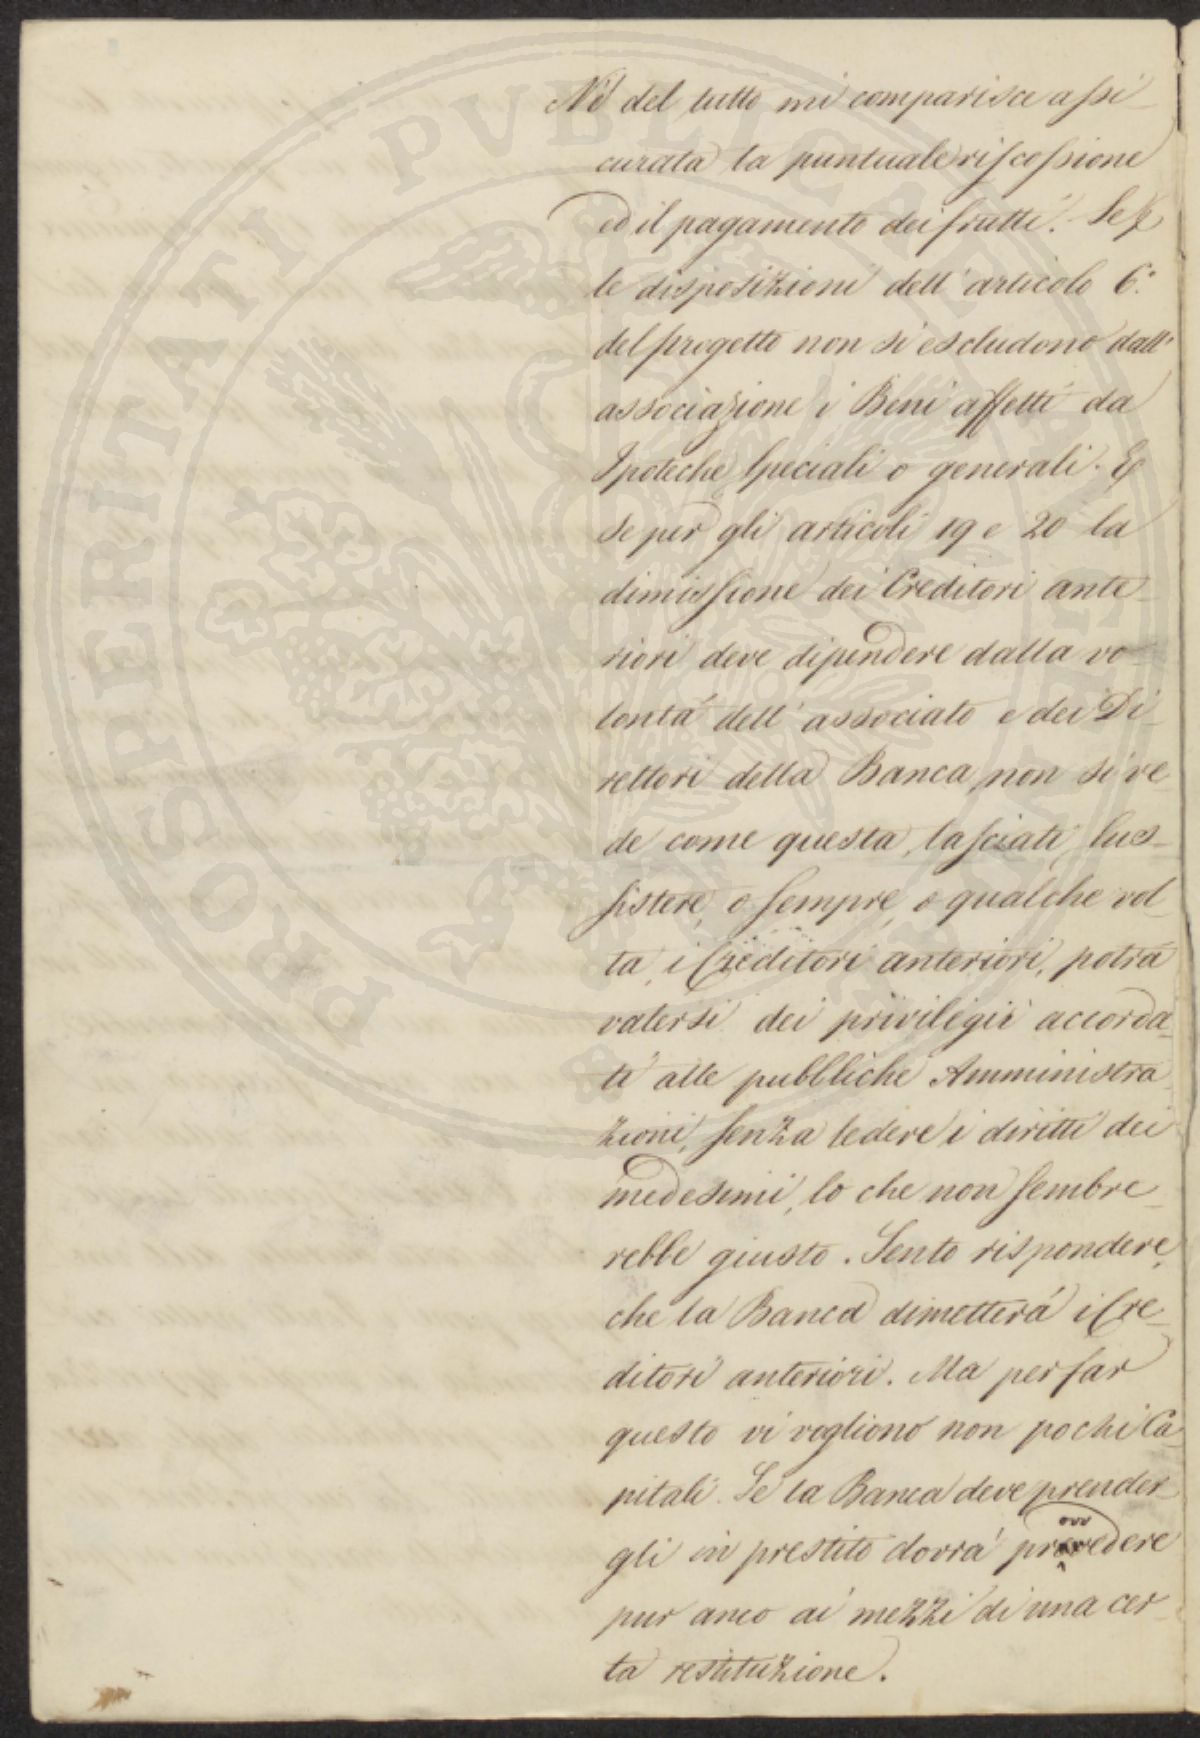 Né del tutto mi comparisce assi-
curata la puntuale riscossione
ed il pagamento dei frutti. Se p
le disposizioni dell'articolo 6.°
del progetto non si escludono dall'
associazione i Beni affetti da
Ipoteche speciali o generali. E
se per gli articoli 19 e 20 la
dimissione dei Creditori ante-
riori deve dipendere dalla vo-
lontà dell'associato e dei Di-
rettori della Banca, non si ve-
de come questa, lasciati sus-
sistere, o sempre, o qualche vol-
ta, i Creditori anteriori, potrà
valersi dei privilegii accorda-
ti alle pubbliche Amministra-
zioni, senza ledere i diritti dei
medesimi, lo che non sembre-
rebbe giusto. Sento rispondere,
che la Banca dimetterà i Cre-
ditori anteriori. Ma per far
questo vi vogliono non pochi Ca-
pitali. Se la Banca deve prender-
gli in prestito dovrà provvedere
pur anco ai mezzi di una cer-
ta restituzione.
PROSPERITATI PVBLICAE